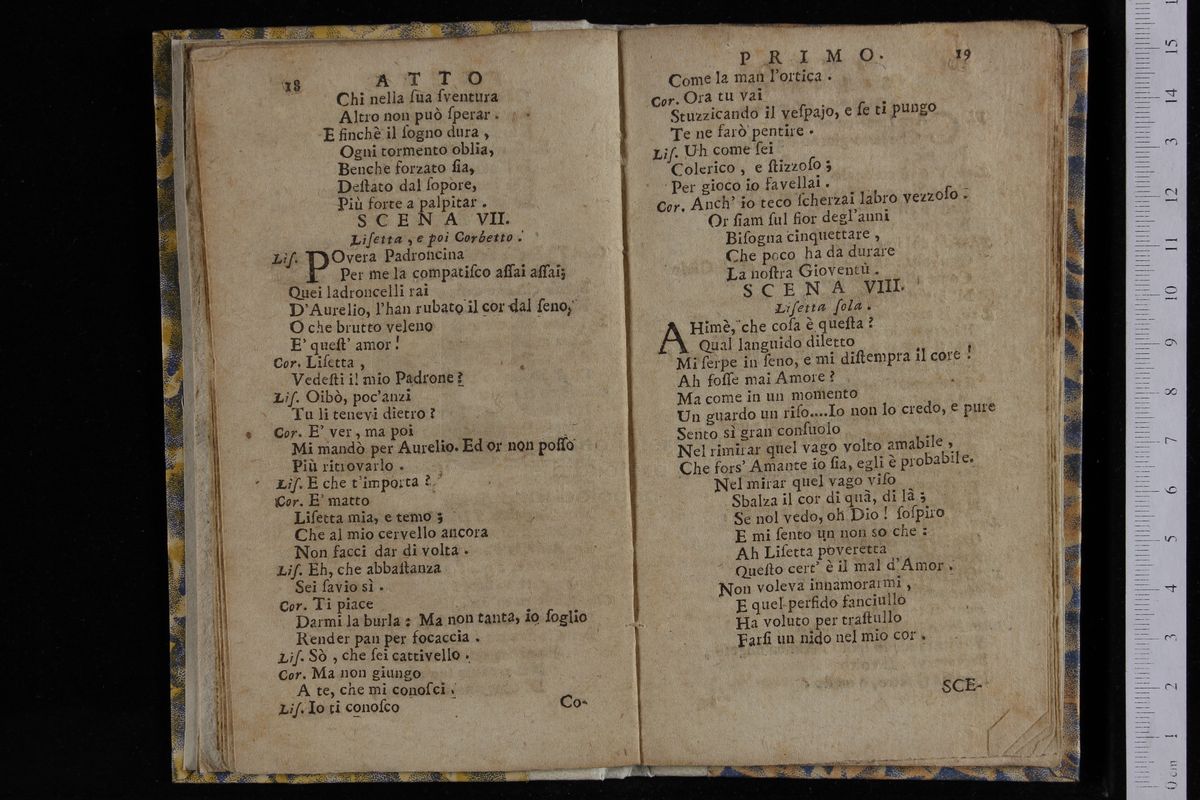 18
ATTO
Chi nella ſua ſventura
Altro non può ſperar.
E finchè il ſogno dura,
Ogni tormento oblia,
Benche forzato ſia,
Deſtato dal ſopore,
Più forte a palpitar.
SCENA VII.
Liſetta, e poi Corbetto.
Liſ. POvera Padroncina
Per me la compatiſco aſſai aſſai;
Quei ladroncelli rai
D'Aurelio, l'han rubato il cor dal ſeno,
O che brutto veleno
E' queſt' amor!
Cor. Liſetta,
Vedeſti il mio Padrone?
Liſ. Oibò, poc'anzi
Tu li tenevi dietro?
Cor. E' ver, ma poi
Mi mandò per Aurelio. Ed or non poſſo
Più ritrovarlo.
Liſ. E che t'importa?
Cor. E' matto
Liſetta mia, e temo;
Che al mio cervello ancora
Non facci dar di volta.
Liſ. Eh, che abbaſtanza
Sei ſavio sì.
Cor. Ti piace
Darmi la burla: Ma non tanta, io ſoglio
Render pan per focaccia.
Liſ. Sò, che ſei cattivello.
Cor. Ma non giungo
A te, che mi conoſci.
Liſ. Io ti conoſco
Co-
PRIMO. 19
Come la man l'ortica.
Cor. Ora tu vai
Stuzzicando il veſpajo, e ſe ti pungo
Te ne farò pentire.
Liſ. Uh come ſei
Colerico, e ſtizzoſo;
Per gioco io favellai.
Cor. Anch' io teco ſcherzai labro vezzoſo.
Or ſiam ſul fior degl'anni
Biſogna cinquettare,
Che poco ha da durare
La noſtra Gioventù.
SCENA VIII.
Liſetta ſola.
AHimè, che coſa è queſta?
Qual languido diletto
Mi ſerpe in ſeno, e mi diſtempra il core!
Ah foſſe mai Amore?
Ma come in un momento
Un guardo un riſo....Io non lo credo, e pure
Sento sì gran conſuolo
Nel rimirar quel vago volto amabile,
Che fors' Amante io ſia, egli è probabile.
Nel mirar quel vago viſo
Sbalza il cor di quà, di là;
Se nol vedo, oh Dio! ſoſpiro
E mi ſento un non so che:
Ah Liſetta poveretta
Queſto cert' è il mal d'Amor.
Non voleva innamorarmi,
E quel perfido fanciullo
Ha voluto per traſtullo
Farſi un nido nel mio cor.
SCE-